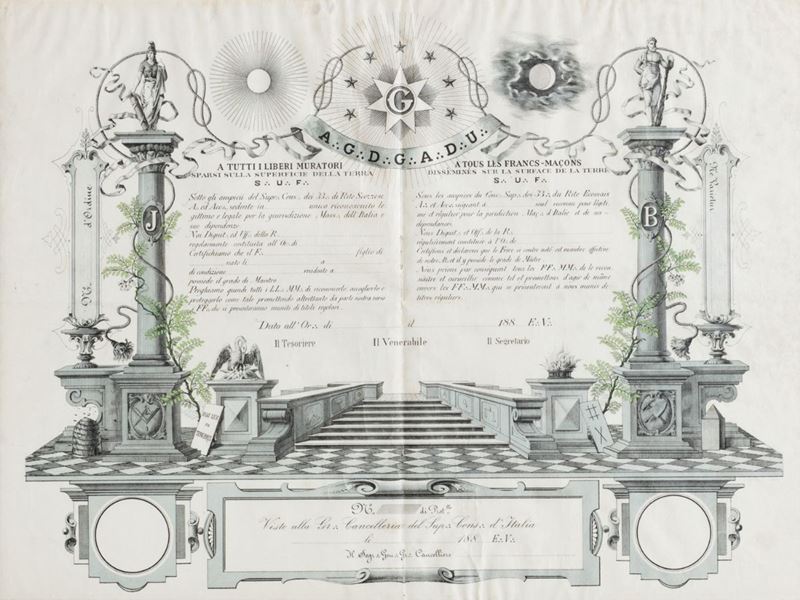 G
A∴G∴D∴G∴A∴D∴U∴
A TUTTI I LIBERI MURATORI
SPARSI SULLA SUPERFICIE DELLA TERRA
S∴ U∴ F∴
Sotto gli auspicii del Sup∴ Cons∴ dei 33∴ di Rito Scozzese
A∴ ed Acc∴ sedente in unico riconosciuto le-
gittimo e legale per la giurisdizione Mass∴ dell'Italia e
sue dipendenze.
Noi Dignit∴ ed Uff∴ della R.
regolarmente costituita all'Or∴ di
Certifichiamo che il F∴ figlio di
nato li a
di condizione residente a
possiede il grado di Maestro
Preghiamo quindi tutti i LL∴ MM∴ di riconoscerlo accoglierlo e
proteggerlo come tale promettendo altrettanto da parte nostra verso i
FF∴ che si presenteranno muniti di titoli regolari.
A TOUS LES FRANCS-MAÇONS
DISSÉMINÉS SUR LA SURFACE DE LA TERRE
S∴ U∴ F∴
Sous les auspices du Conc∴ Sup∴ des 33∴ du Rite Ecossais
A∴ et Acc∴ siégeant à seul reconnu pour légiti-
me et régulier pour la juridiction Maç∴ d'Italie et de ses
dépendances.
Nous Dignit∴ et Off∴ de la R∴
régulièrement constituée à l'O∴ de
Certifions et déclarons que le Frère
de notre et il y possède le grade de Maître
Nous prions par conséquent tous les FF∴ MM∴ de le recon-
naître et accueillir comme tel et promettons d'agir de même
envers les FF∴ MM∴ qui se présenteront à nous munis de
titres réguliers.
J
B
N∴ d'Ordine
Ne Varietur
Dato all'Or∴ di il 188 E∴V∴
Il Tesoriere Il Venerabile Il Segretario
N. di Prot.llo
Visto alla Gr∴ Cancelleria del Sup∴ Cons∴ d'Italia
li 188 E∴V∴
Il Segr∴ Gen∴ Gr∴ Cancelliere